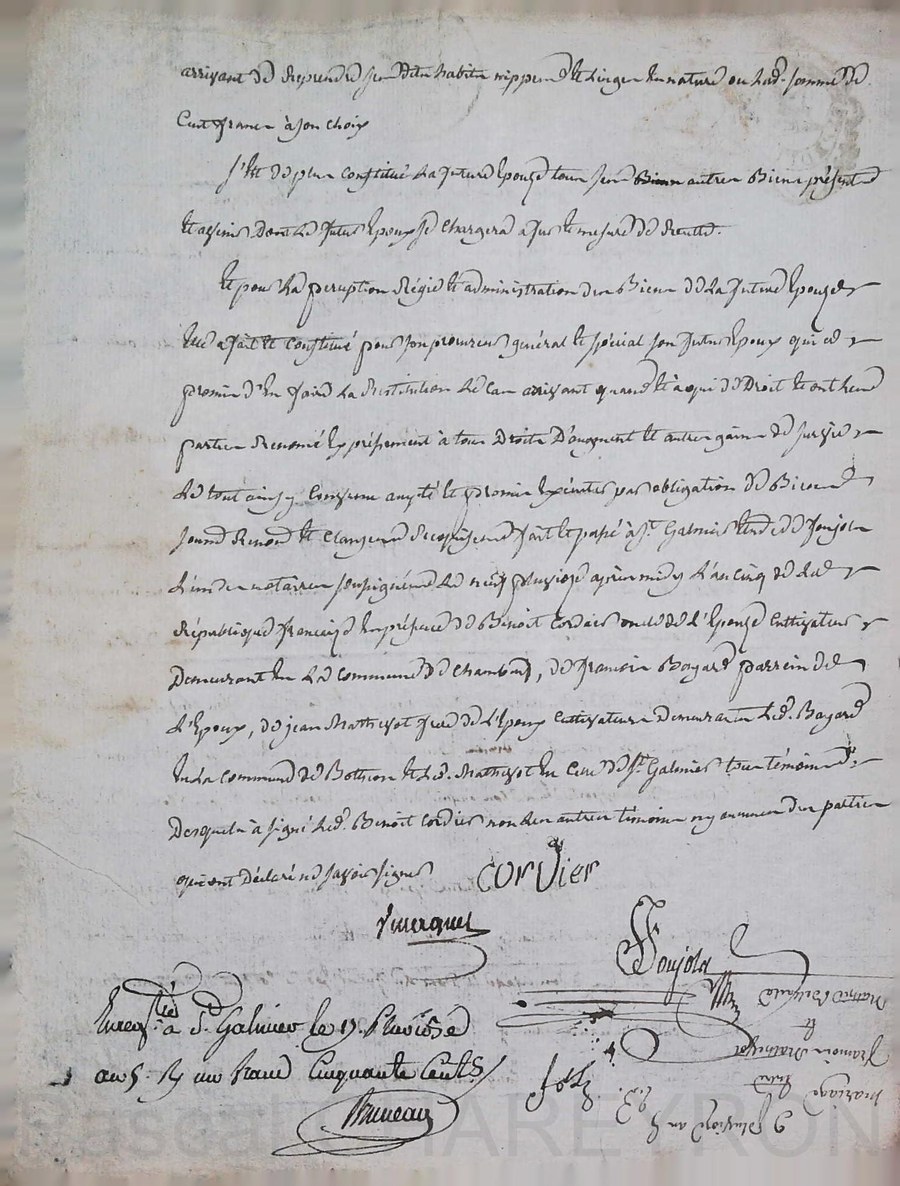 arrivant de reprendre ses dits habits nippes et linges en nature ou lad. somme de
Cent francs à son choix
S'Est de plus constitué La future Epouse tous ses autres Biens présents
Et avenir Dont Le futur Epoux se chargera a fur et mesure de Recette.
Et pour La perception Régie Et administration des Biens de La future Epouse
Elle a fait Et Constitué pour son procureur général Et spécial son futur Epoux qui a
promis d'En faire La Restitution Le Cas arrivant quand Et à qui de Droit Et ont Les
parties Renoncé Expréssement à tous Droits D'augment Et autres gains de survie
Le tout ainsy Convenu anpté Et promis Exécuter par obligation de Biens
soumis Renon Et Clauses Requises fait Et passé à St. Galmier Etude de Foujols
L'un des notaires soussignés Le neuf pluviose après midy L'an cinq de La
République française En présence de Benoit Cordier oncle de L'Epouse Cultivateur
Demeurant En La Commune de Chambeuf, de francois Bayard parrein de
L'Epoux, de jean Mathevot frere de L'Epoux Cultivateurs Demeurants Led. Bayard
En La Commune de Bothéon Et Led. Mathevot En Celle de St. Galmier tous témoins
Desquels a signé Led. Benoit Cordier non Les autres témoins ny aucunes des parties
qui ont Déclaré ne savoir signer cordier
Foujols
Enregistré à St. Galmier le 17. Pluviose
an 5. R un franc Cinquante Cents
Bruneau
mariage
Entre
francois Mathevot
Et
9 pluviose an 5
Pascal CHAREYRON